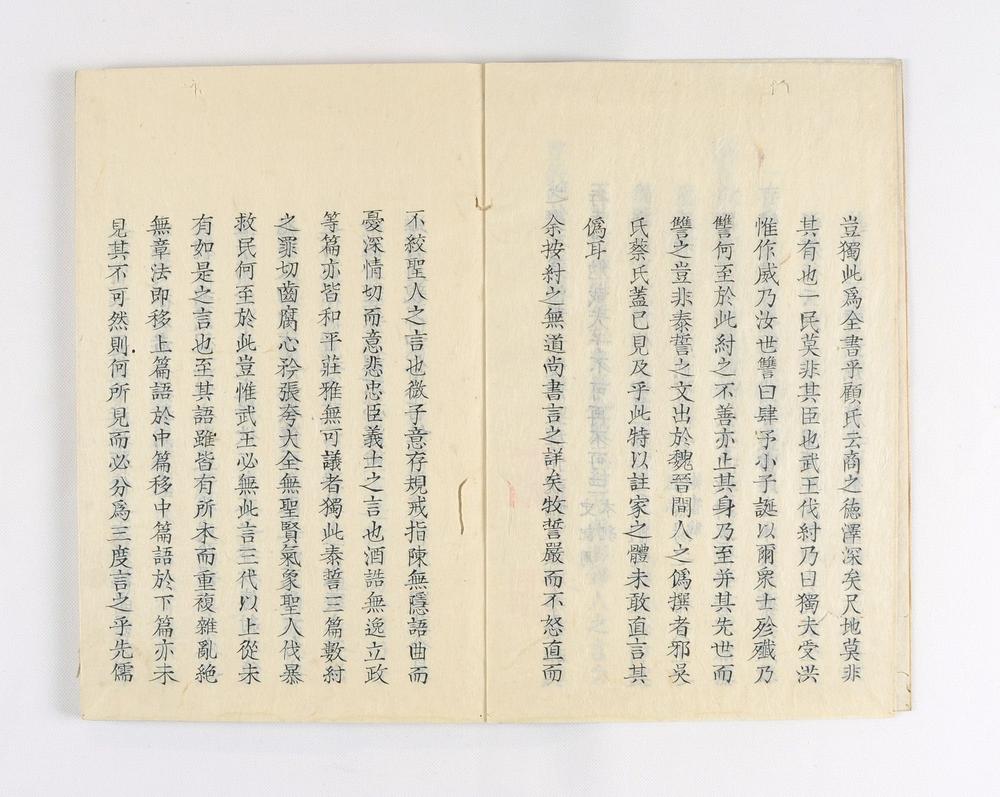 豈獨此爲全書乎顧氏云商之德澤深矣尺地莫非
其有也一民莫非其臣也武王伐紂乃曰獨夫受洪
惟作威乃汝世讐曰肆予小子誕以爾衆士殄殲乃
讐何至於此紂之不善亦止其身乃至并其先世而
讐之豈非泰誓之文出於魏晉間人之僞撰者邪吴
氏蔡氏蓋已見及乎此特以註家之體未敢直言其
僞耳
余按紂之無道尚書言之詳矣牧誓嚴而不怒直而
不絞聖人之言也微子意存規戒指陳無隱語曲而
憂深情切而意悲忠臣義士之言也酒誥無逸立政
等篇亦皆和平莊雅無可議者獨此泰誓三篇數紂
之罪切齒腐心矜張夸大全無聖賢氣象聖人伐暴
救民何至於此豈惟武王必無此言三代以上從未
有如是之言也至其語雖皆有所本而重複雜亂絶
無章法即移上篇語於中篇移中篇語於下篇亦未
見其不可然則何所見而必分爲三度言之乎先儒